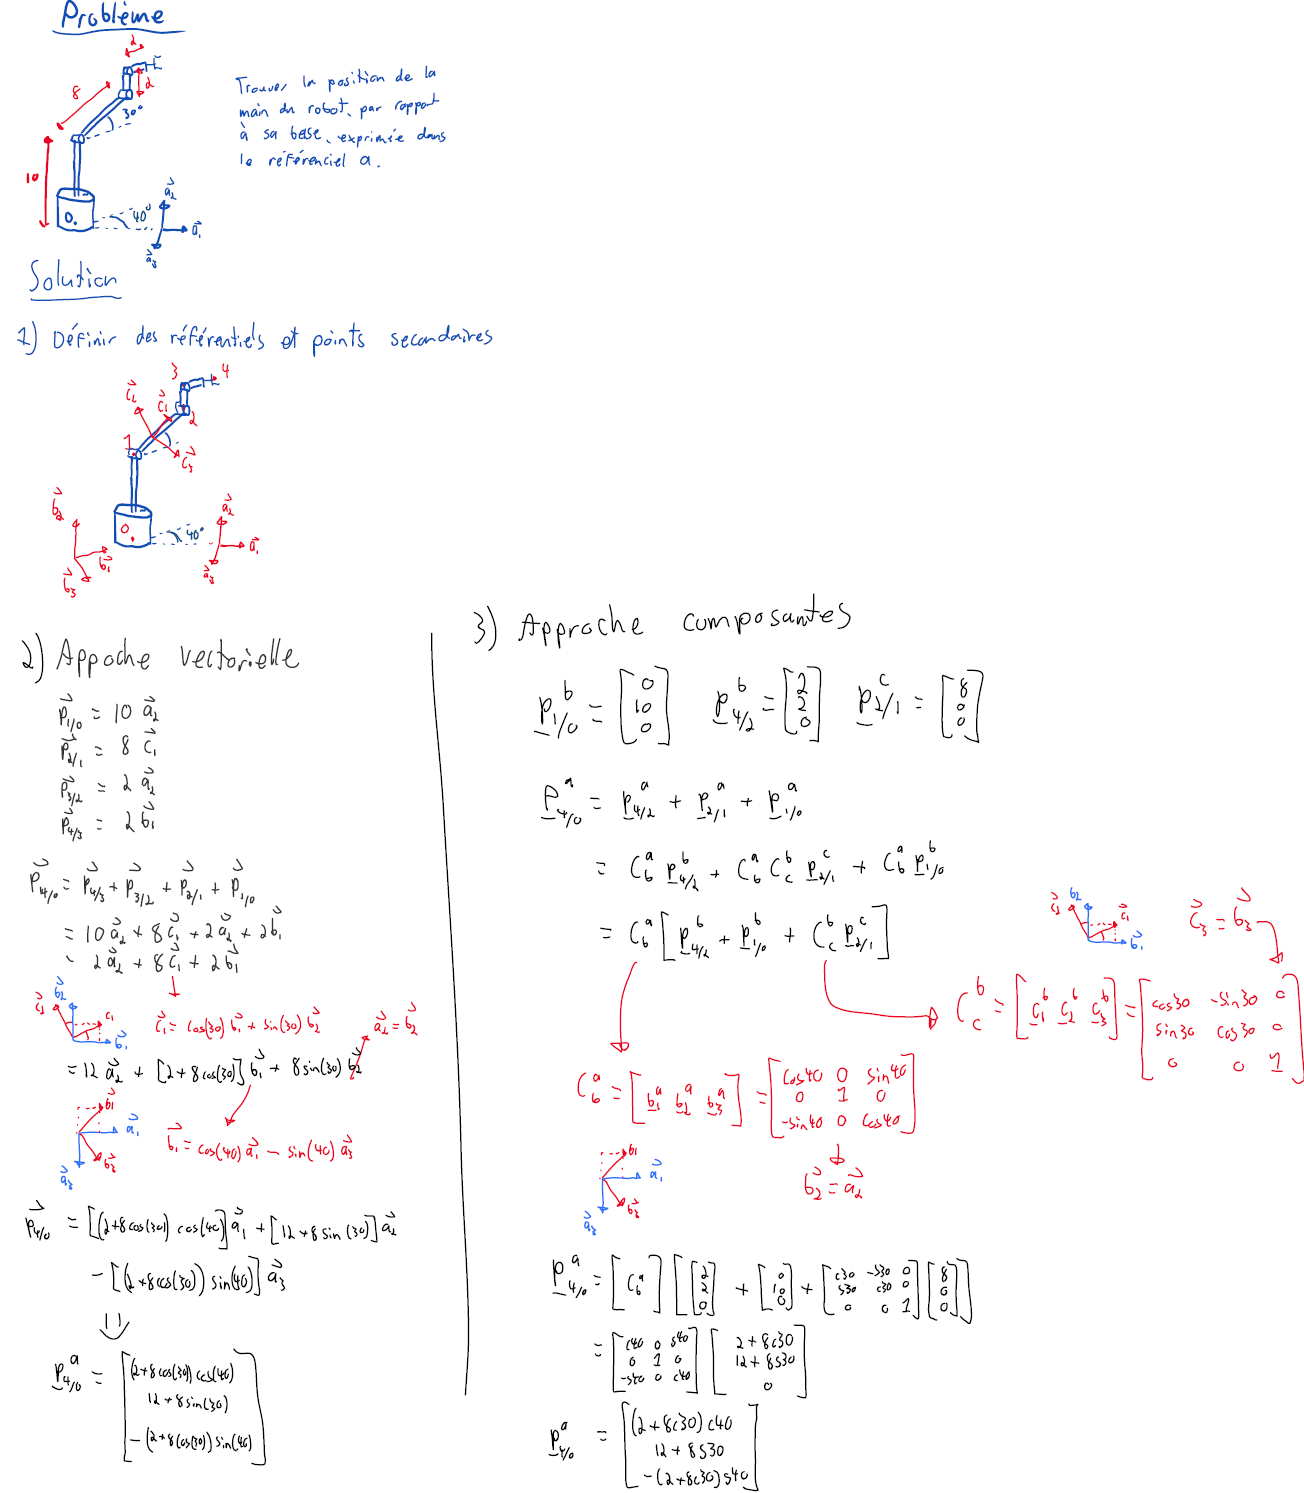 Problème
2
8
2
30°
10
0.
40°
a⃗₂
a⃗₁
a⃗₃
Trouver la position de la
main du robot, par rapport
à sa base, exprimée dans
le référenciel a.
Solution
1) Définir des référentiels et points secondaires
3
4
c⃗₂
c⃗₁
2
1
c⃗₃
b⃗₂
b⃗₁
b⃗₃
0.
40°
a⃗₂
a⃗₁
a⃗₃
2) Appoche vectorielle
p⃗₁/₀ = 10 a⃗₂
p⃗₂/₁ = 8 c⃗₁
p⃗₃/₂ = 2 a⃗₂
p⃗₄/₃ = 2 b⃗₁
p⃗₄/₀ = p⃗₄/₃ + p⃗₃/₂ + p⃗₂/₁ + p⃗₁/₀
= 10 a⃗₂ + 8 c⃗₁ + 2 a⃗₂ + 2 b⃗₁
= 2 a⃗₂ + 8 c⃗₁ + 2 b⃗₁
c⃗₂ b⃗₂ c₁ b⃗₁
c⃗₁ = cos(30) b⃗₁ + sin(30) b⃗₂
a⃗₂ = b⃗₂
= 12 a⃗₂ + [2+8cos(30)] b⃗₁ + 8 sin(30) b⃗₂
b⃗₁ a⃗₁ b⃗₃ a⃗₃
b⃗₁ = cos(40) a⃗₁ - sin(40) a⃗₃
p⃗₄/₀ = [(2+8cos(30)) cos(40)] a⃗₁ + [12+8 sin(30)] a⃗₂
- [(2+8cos(30)) sin(40)] a⃗₃
p₄/₀ᵃ = [(2+8cos(30)) cos(40)
12+8sin(30)
-(2+8cos(30)) sin(40)]
3) Approche composantes
p₁/₀ᵇ = [0 10 0] p₄/₂ᵇ = [2 2 0] p₂/₁ᶜ = [8 0 0]
p₄/₀ᵃ = p₄/₂ᵃ + p₂/₁ᵃ + p₁/₀ᵃ
= C_bᵃ p₄/₂ᵇ + C_bᵃ C_cᵇ p₂/₁ᶜ + C_bᵃ p₁/₀ᵇ
= C_bᵃ [p₄/₂ᵇ + p₁/₀ᵇ + C_cᵇ p₂/₁ᶜ]
c⃗₂ b₂ c⃗₁ b⃗₁
c⃗₃ = b⃗₃
C_cᵇ = [c₁ᵇ c₂ᵇ c₃ᵇ] = [cos30 -sin30 0
sin30 cos30 0
0 0 1]
C_bᵃ = [b₁ᵃ b₂ᵃ b₃ᵃ] = [cos40 0 sin40
0 1 0
-sin40 0 cos40]
b₁ a⃗₁ b⃗₃ a⃗₃
b⃗₂ = a⃗₂
p₄/₀ᵃ = [C_bᵃ] [[2 2 0] + [0 10 0] + [c30 -s30 0
s30 c30 0
0 0 1] [8 0 0]]
= [c40 0 s40
0 1 0
-s40 0 c40] [2+8c30
12+8s30
0]
p₄/₀ᵃ = [(2+8c30) c40
12+8s30
-(2+8c30) s40]